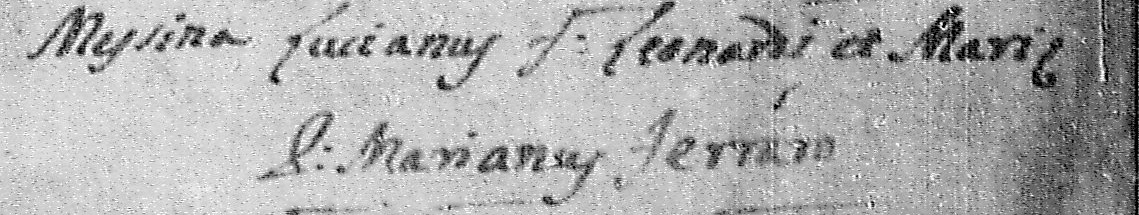 Messina Lucianus f: Leonardi et Marię
P: Marianus Ferraro